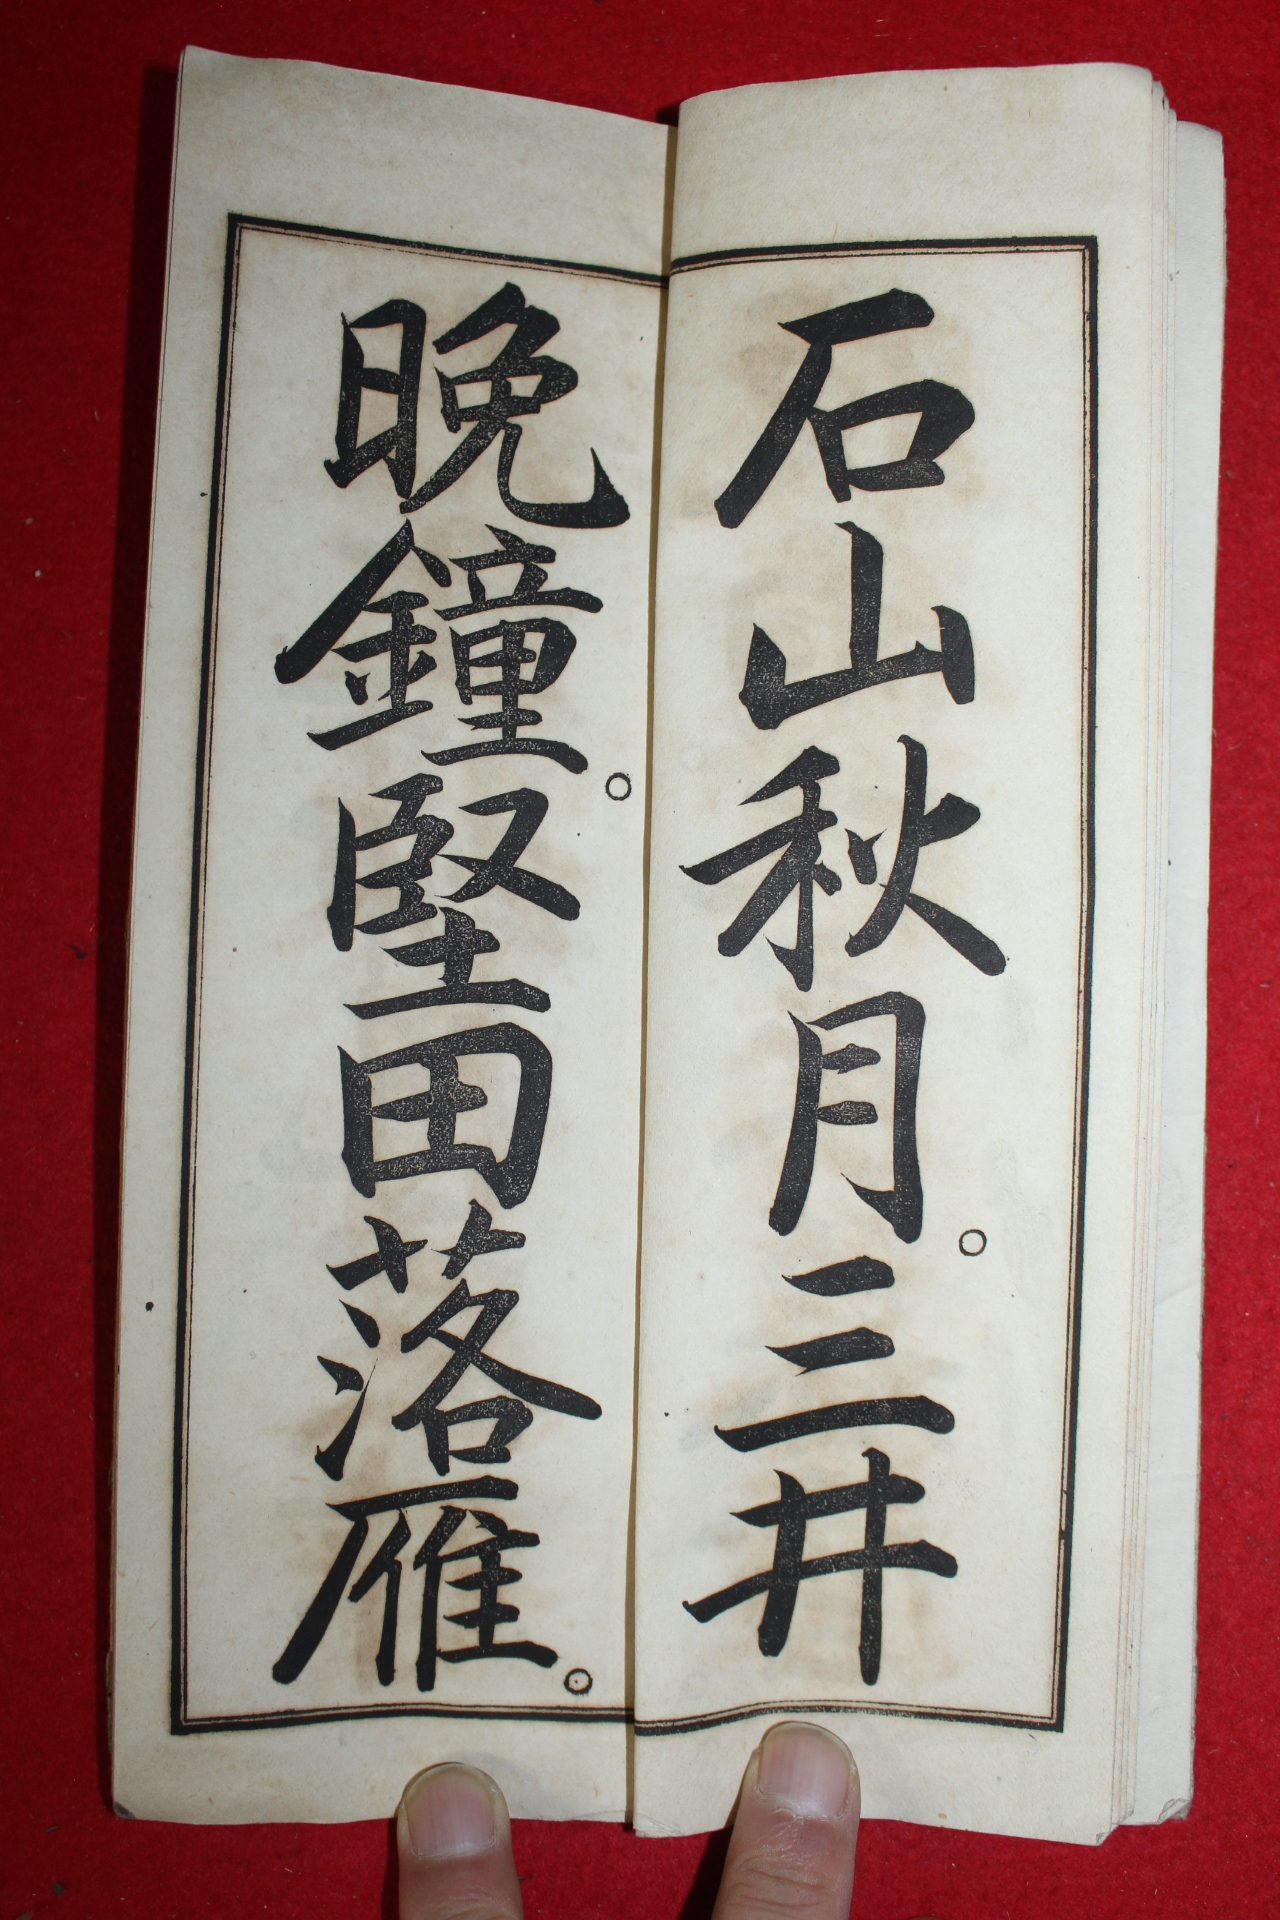 石山秋月。三井
晚鐘。堅田落雁。